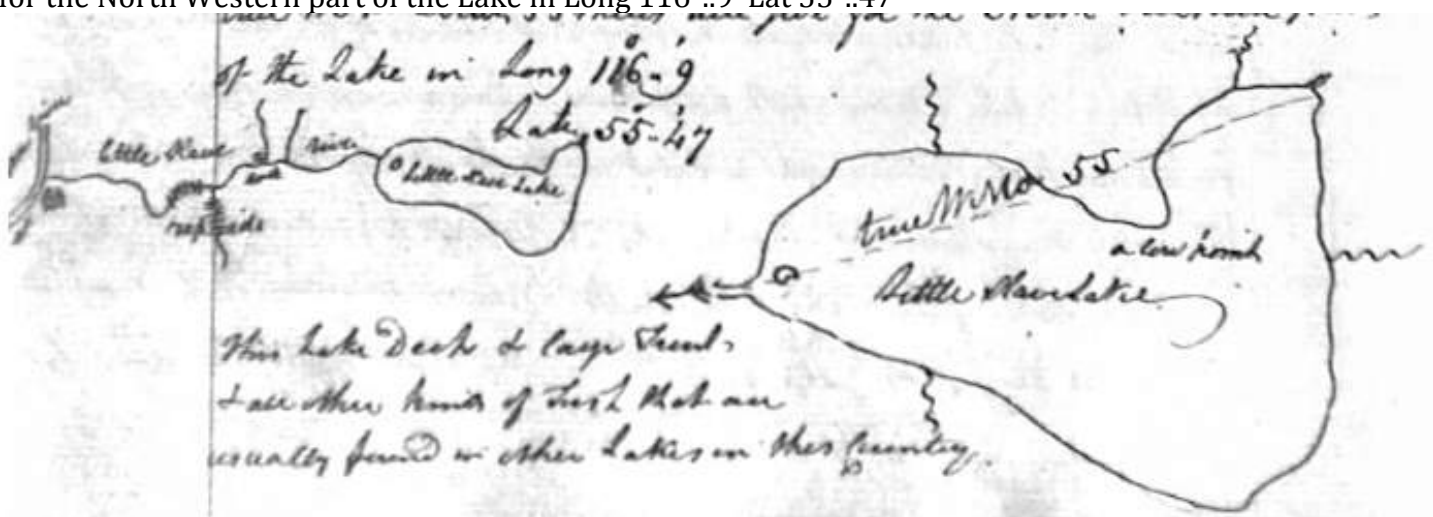 for the North Western part of the Lake in Long 116°..9' Lat 55°..47'
of the Lake in Long 116° 9'
Lat 55° 47'
little Slave river
Little Slave Lake
rapids
true W
55
a low point
Little Slave Lake
This Lake Deep & large Trout
& all other kinds of Fish that are
usually found in other Lakes in this Country.